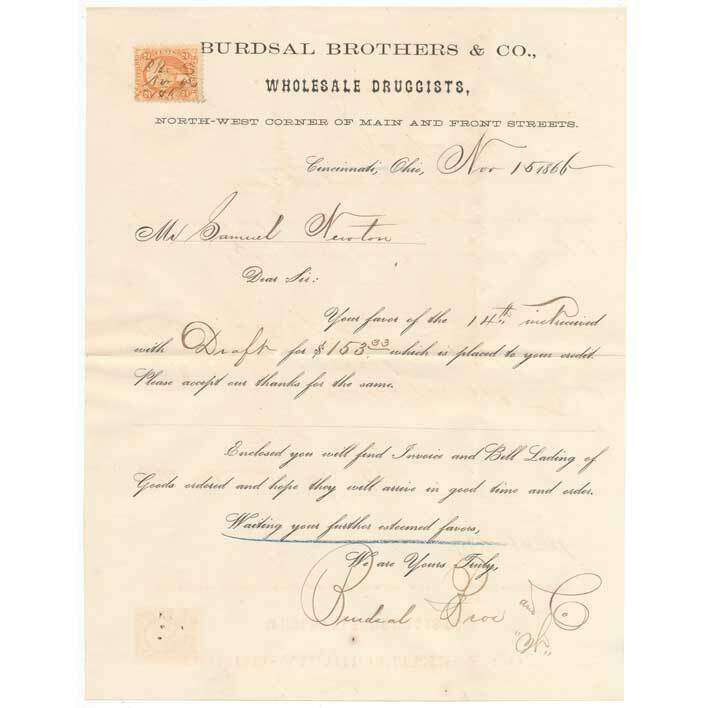 BURDSAL BROTHERS & CO.,
WHOLESALE DRUGGISTS,
NORTH-WEST CORNER OF MAIN AND FRONT STREETS.
Cincinnati, Ohio, Nov 15 1866
Mr Samuel Newton
Dear Sir:
Your favor of the 14th inst received
with Draft for $153.33 which is placed to your credit.
Please accept our thanks for the same.
Enclosed you will find Invoice and Bill Lading of
Goods ordered and hope they will arrive in good time and order.
Waiting your further esteemed favors,
We are Yours Truly,
Burdsal Bros and Co